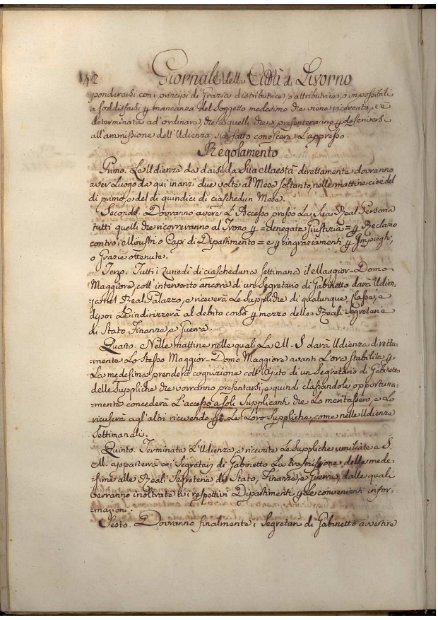 142 Giornale della Città di Livorno
ponderarsi con i principj di Grazia distributiva, o attributiva, o in possibili
a soddisfarsi p mancanza del Soggetto medesimo che viene ricercata, è
determinata ad ordinare che quelli che si presenteranno p
all'ammissione dell'Udienza sia fatto conoscere L'appresso
Regolamento
Primo. Le Udienze da darsi da Sua Maestà direttamente dovranno
aver luogo da qui inanzi due volte al Mese soltanto nelle mattine cioè del
di primo, e del di quindici di ciaschedun Mese.
Secondo. Dovranno avere L'Accesso presso La Sua Real Persona
tutti quelli che ricorreranno al Trono p = denegata giustizia = p Reclamo
contro i Ministri o Capi di Dipartimento = e p ringraziamenti p Impieghi
o Grazie ottenute.
Terzo. Tutti i Lunedì di ciascheduna Settimana il Maggior-Domo
Maggiore coll'intervento ancora di un Segretario di Gabinetto darà Udien-
za nel Real Palazzo, e riceverà Le Suppliche di qualunque
dipoi L'indirizzerà al debito corso p mezzo delle Reali Segreterie
di Stato, Finanze, e Guerra.
Quarto. Nelle mattine nelle quali La M. S. darà Udienza diretta-
mente Lo stesso Maggior-Domo Maggiore avanti L'ora stabilita p
La medesima prenderà cognizione coll'ajuto di un Segretario di Gabinetto
delle Suppliche che vorranno presentarsi, e quindi classandole opportuna-
mente concederà L'accesso a soli Supplicanti che Lo meritassero, e Lo
ricuserà agl'altri ricevendo Le Loro Suppliche come nelle Udienze
Settimanali.
Quinto. Terminata L'Udienza, e ricevute Le Suppliche umiliate a S.
M. apparterrà ai Segretarj di Gabinetto La trasmissione delle mede-
sime alle Reali Segreterie di Stato, Finanze, e Guerra, dalle quali
verranno inoltrate ai respettivi Dipartimenti p Le convenienti infor-
mazioni.
Sesto. Dovranno finalmente i Segretari di Gabinetto avvertire